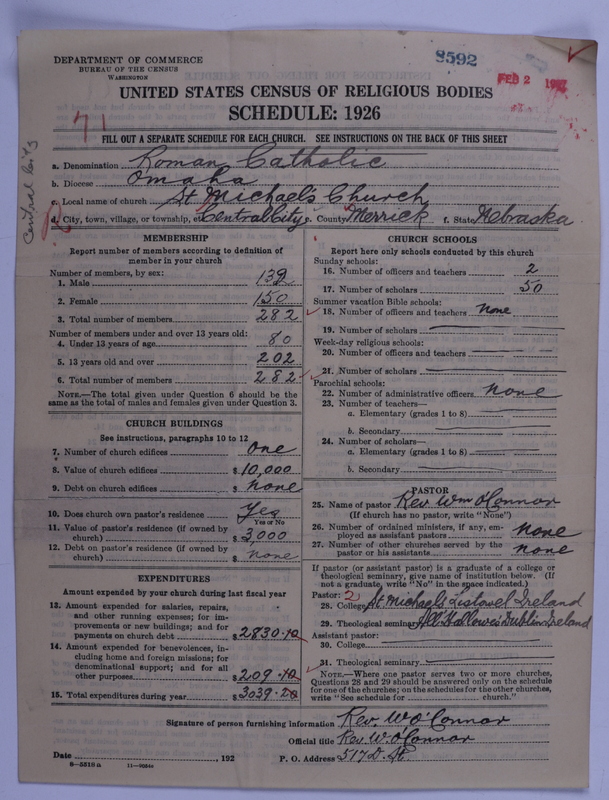 DEPARTMENT OF COMMERCE
BUREAU OF THE CENSUS
WASHINGTON
8592
FEB 2 1927
UNITED STATES CENSUS OF RELIGIOUS BODIES
SCHEDULE: 1926
71
FILL OUT A SEPARATE SCHEDULE FOR EACH CHURCH. SEE INSTRUCTIONS ON THE BACK OF THIS SHEET
Central City
a. Denomination Roman Catholic
b. Diocese Omaha
c. Local name of church St Michael's Church
d. City, town, village, or township, Central City e. County Merrick f. State Nebraska
MEMBERSHIP
Report number of members according to definition of
member in your church
Number of members, by sex:
1. Male 132
2. Female 150
3. Total number of members 282
Number of members under and over 13 years old:
4. Under 13 years of age 80
5. 13 years old and over 202
6. Total number of members 282
NOTE.—The total given under Question 6 should be the
same as the total of males and females given under Question 3.
CHURCH BUILDINGS
See instructions, paragraphs 10 to 12
7. Number of church edifices One
8. Value of church edifices $10,000
9. Debt on church edifices $ none
10. Does church own pastor's residence Yes
Yes or No
11. Value of pastor's residence (if owned by
church) $3,000
12. Debt on pastor's residence (if owned by
church) $ none
EXPENDITURES
Amount expended by your church during last fiscal year
13. Amount expended for salaries, repairs,
and other running expenses; for im-
provements or new buildings; and for
payments on church debt $2830.10
14. Amount expended for benevolences, in-
cluding home and foreign missions; for
denominational support; and for all
other purposes $209.10
15. Total expenditures during year $3039.20
CHURCH SCHOOLS
Report here only schools conducted by this church
Sunday schools:
16. Number of officers and teachers 2
17. Number of scholars 50
Summer vacation Bible schools:
18. Number of officers and teachers none
19. Number of scholars
Week-day religious schools:
20. Number of officers and teachers
21. Number of scholars
Parochial schools:
22. Number of administrative officers none
23. Number of teachers—
a. Elementary (grades 1 to 8)
b. Secondary
24. Number of scholars—
a. Elementary (grades 1 to 8)
b. Secondary
PASTOR
25. Name of pastor Rev Wm O'Connor
(If church has no pastor, write "None")
26. Number of ordained ministers, if any, em-
ployed as assistant pastors none
27. Number of other churches served by the
pastor or his assistants none
If pastor (or assistant pastor) is a graduate of a college or
theological seminary, give name of institution below. (If
not a graduate, write "No" in the space indicated.)
Pastor: 2
28. College St Michaels Listowel Ireland
29. Theological seminary All Hallowes Dublin Ireland
Assistant pastor:
30. College
31. Theological seminary
NOTE.—Where one pastor serves two or more churches,
Questions 28 and 29 should be answered only on the schedule
for one of the churches; on the schedules for the other churches,
write "See schedule for church."
Signature of person furnishing information Rev. W O'Connor
Official title Rev. W. O'Connor
Date , 192 P. O. Address 517 D. St.
8—5518a 11—9054c